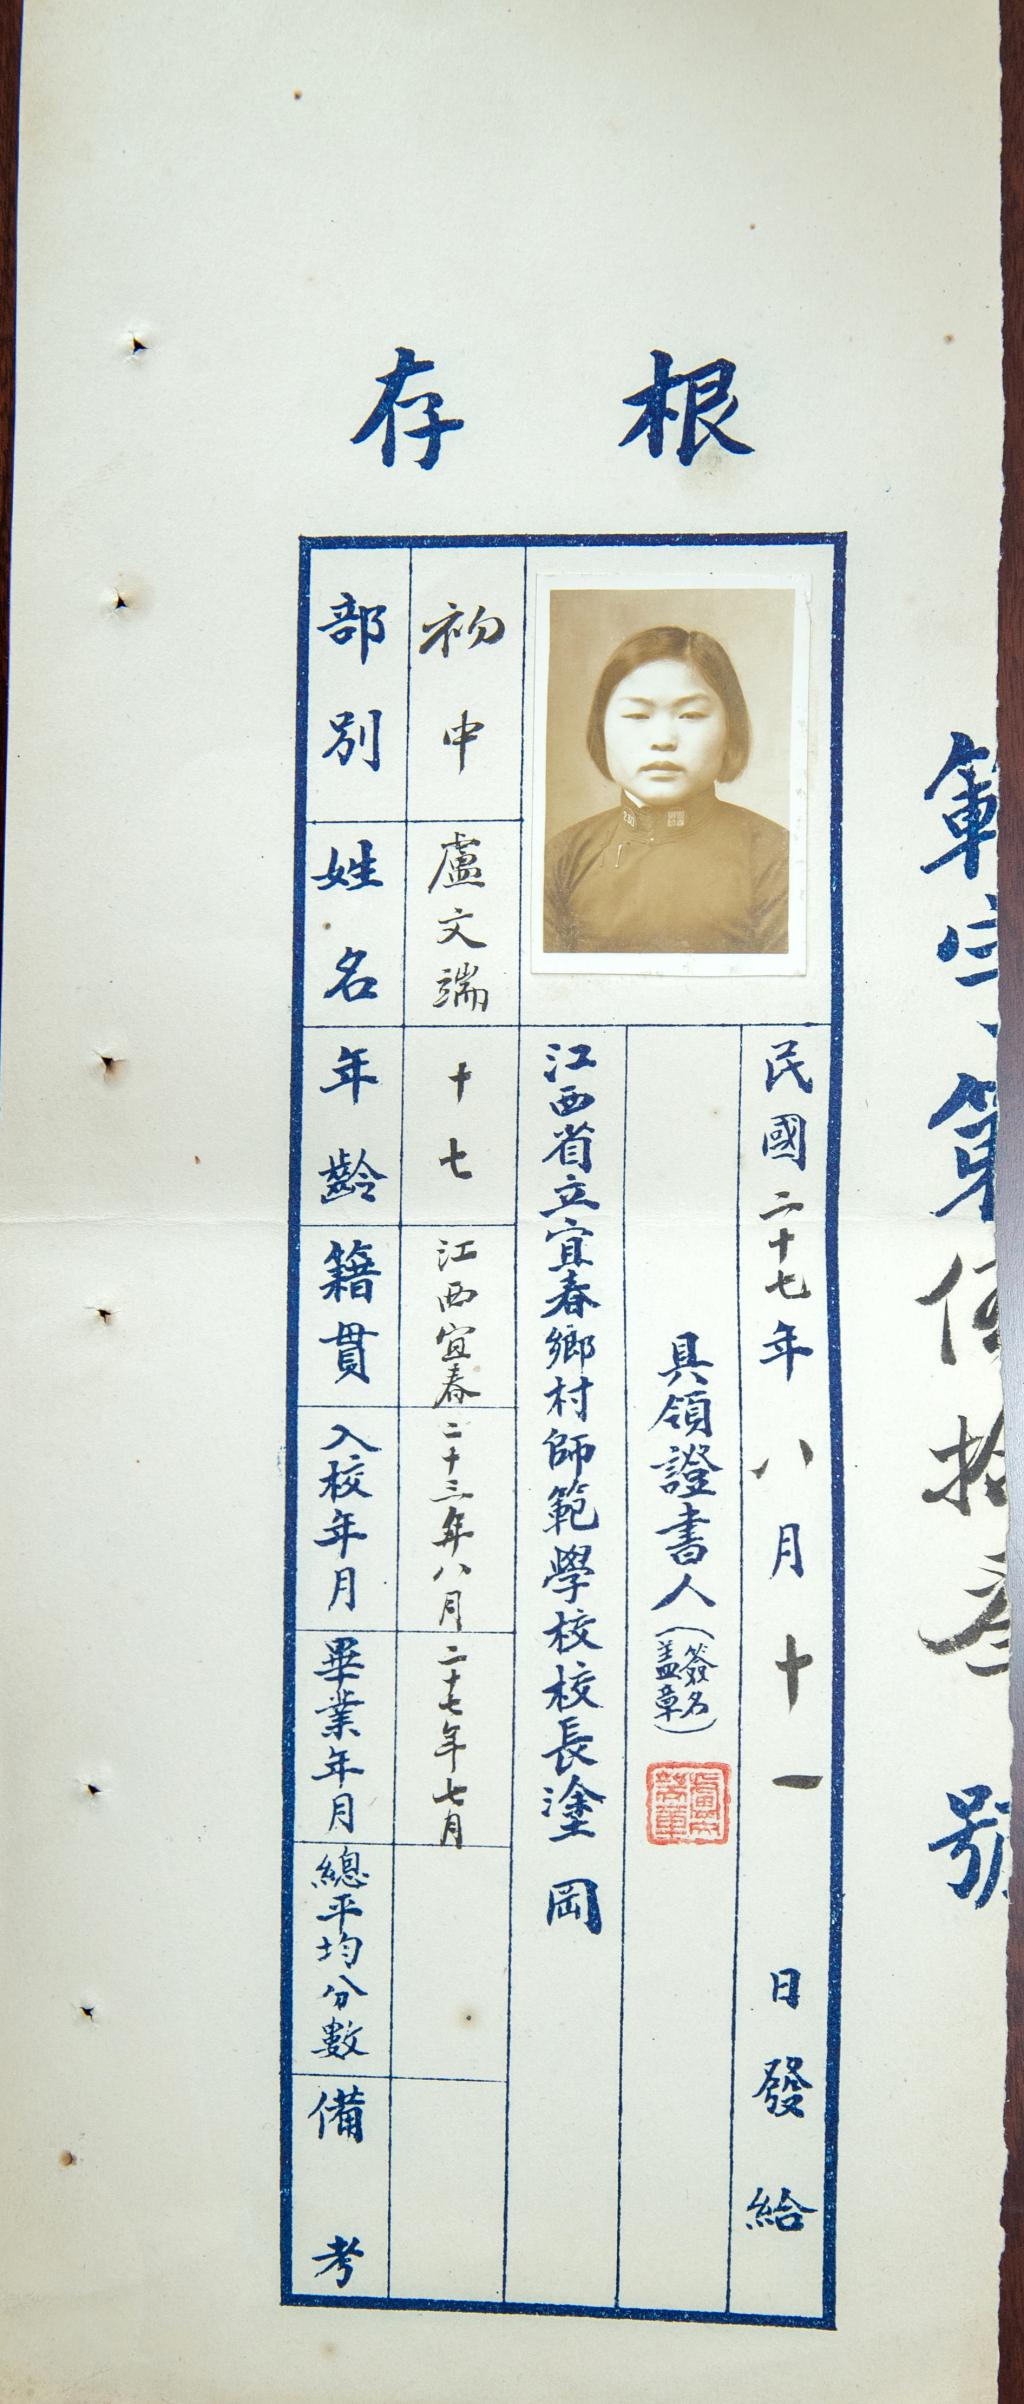 範字第伍拾叁號
存根
部別
初中
姓名
盧文端
年齡
十七
籍貫
江西宜春
入校年月
二十三年八月
畢業年月
二十七年七月
總平均分數
備考
江西省立宜春鄉村師範學校校長塗岡
具領證書人(簽名蓋章)
盧文端章
民國二十七年八月十一日發給